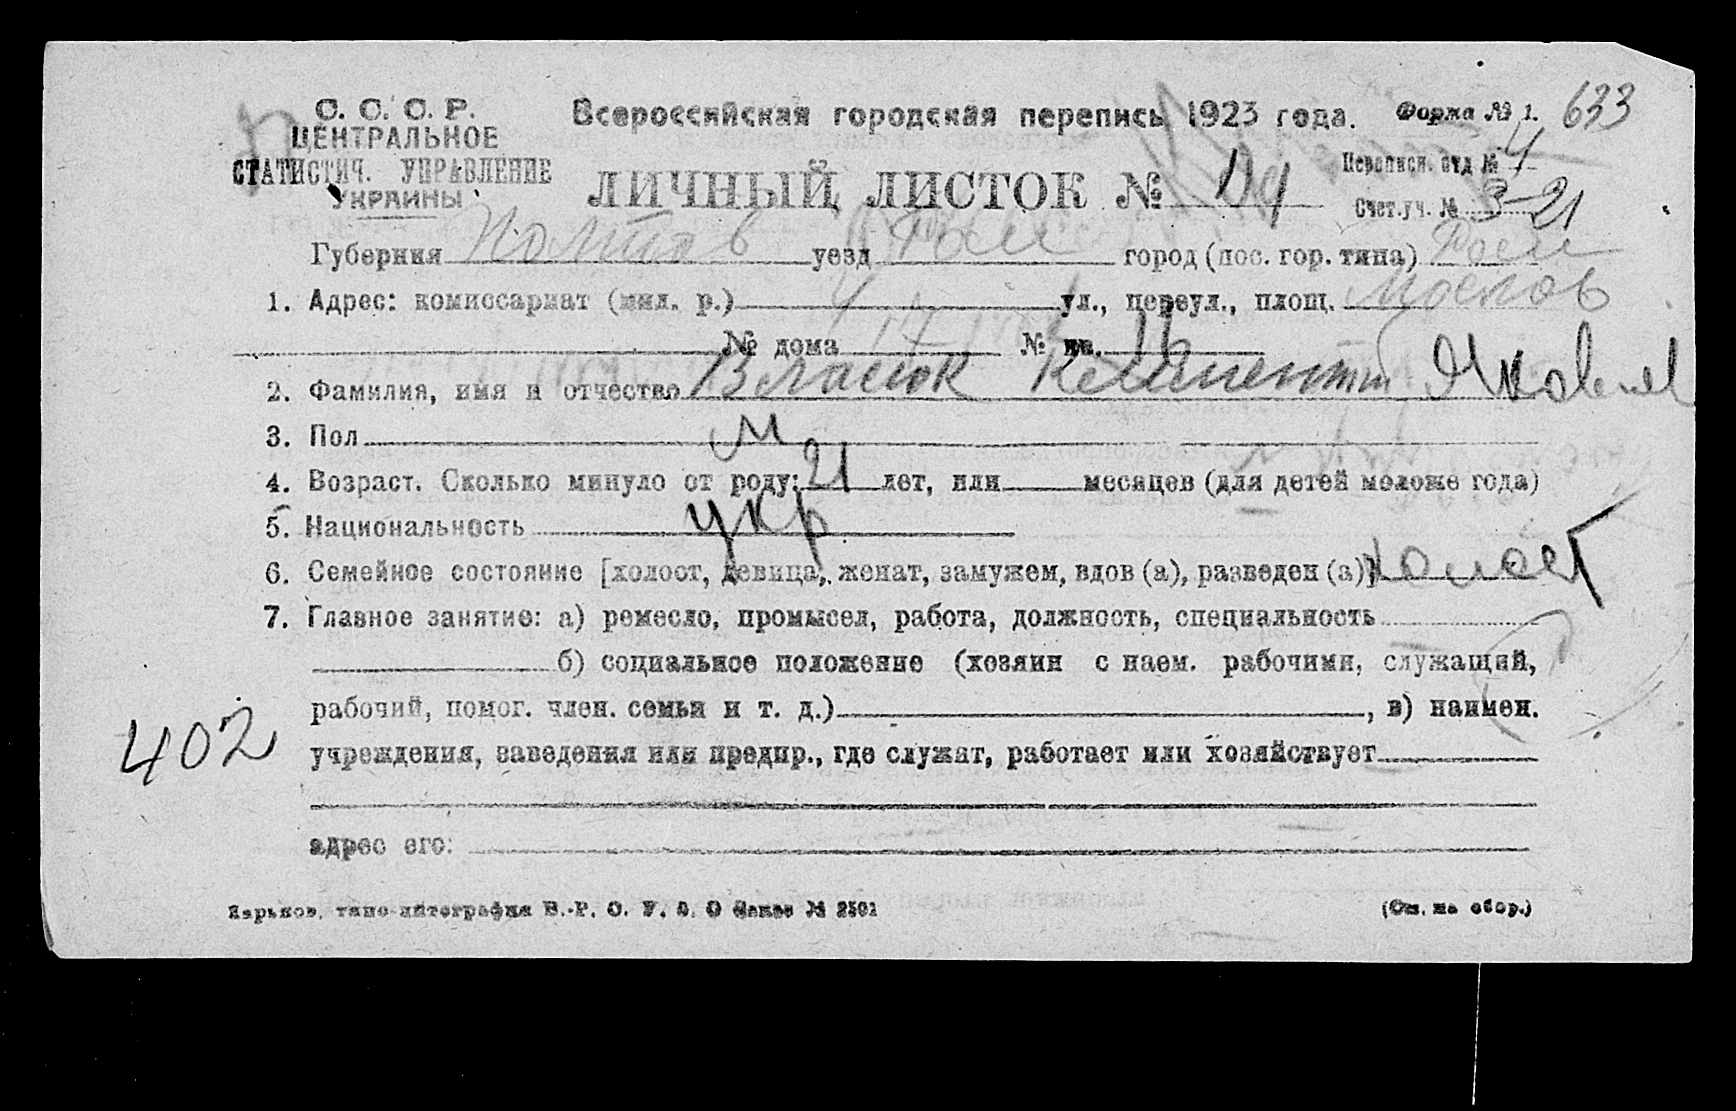 С. С. С. Р.
ЦЕНТРАЛЬНОЕ
СТАТИСТИЧ. УПРАВЛЕНИЕ
УКРАИНЫ
Всероссийская городская перепись 1923 года. Форма № 1. 633
ЛИЧНЫЙ ЛИСТОК №
Переписн. отд № 4
Счет.уч. № 3-21
Губерния Полтов уезд Ром город (пос. гор. типа) Ром
1. Адрес: комиссариат (мил. р.) 4 ул., переул., площ. Москов
№ дома 17 № кв.
2. Фамилия, имя и отчество Власюк Климентий Яковлев
3. Пол М
4. Возраст. Сколько минуло от роду: 21 лет, или месяцев (для детей моложе года)
5. Национальность укр
6. Семейное состояние [холост, девица, женат, замужем, вдов (а), разведен (а)] холост
7. Главное занятие: а) ремесло, промысел, работа, должность, специальность
б) социальное положение (хозяин с наем. рабочими, служащий,
рабочий, помог. член. семьи и т. д.) , в) наимен.
402
учреждения, заведения или предпр., где служит, работает или хозяйствует
адрес его:
Харьков, типо-литография В.-Р. О. У. В. О Заказ № 2501 (См. на обор.)